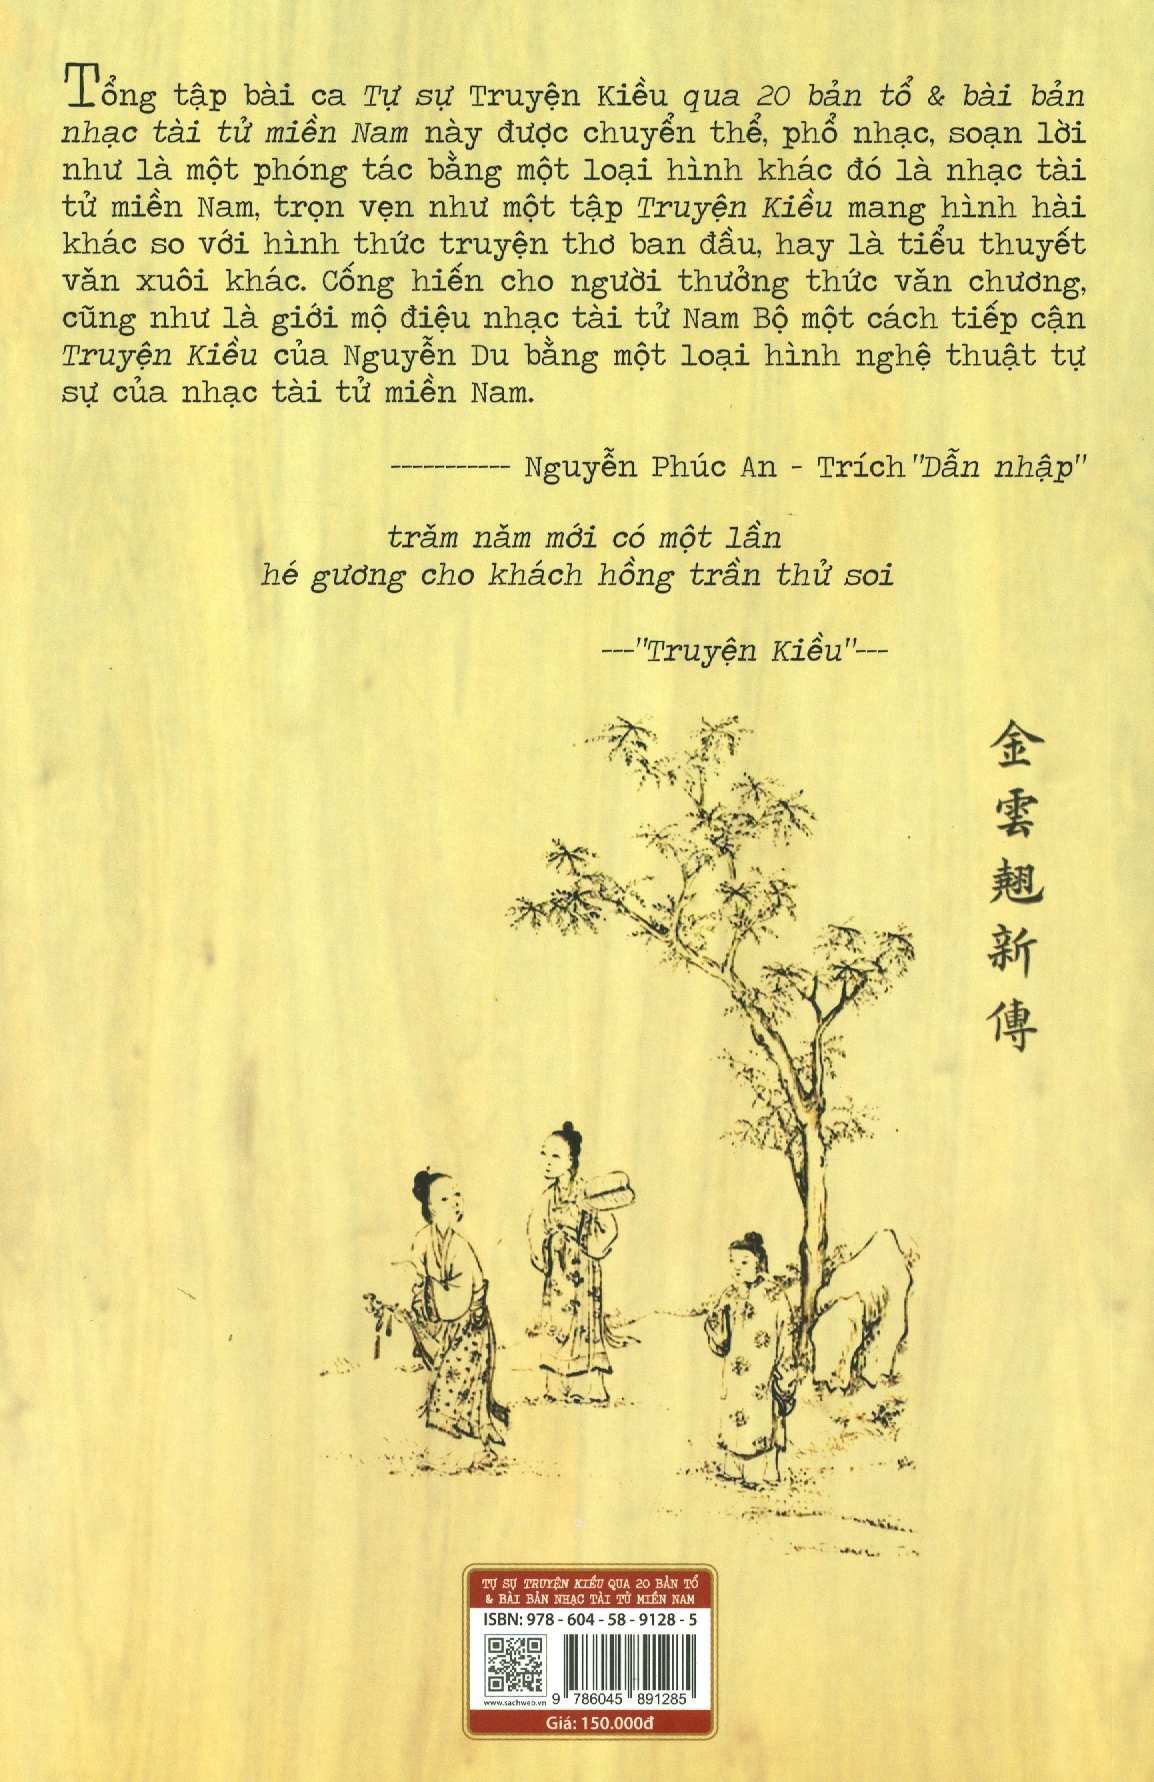 Tổng tập bài ca Tự sự Truyện Kiều qua 20 bản tổ & bài bản
nhạc tài tử miền Nam này được chuyển thể, phổ nhạc, soạn lời
như là một phóng tác bằng một loại hình khác đó là nhạc tài
tử miền Nam, trọn vẹn như một tập Truyện Kiều mang hình hài
khác so với hình thức truyện thơ ban đầu, hay là tiểu thuyết
văn xuôi khác. Cống hiến cho người thưởng thức văn chương,
cũng như là giới mộ điệu nhạc tài tử Nam Bộ một cách tiếp cận
Truyện Kiều của Nguyễn Du bằng một loại hình nghệ thuật tự
sự của nhạc tài tử miền Nam.
----------- Nguyễn Phúc An - Trích "Dẫn nhập"
trăm năm mới có một lần
hé gương cho khách hồng trần thử soi
---"Truyện Kiều"---
金雲翹新傳
TỰ SỰ TRUYỆN KIỀU QUA 20 BẢN TỔ
& BÀI BẢN NHẠC TÀI TỬ MIỀN NAM
ISBN: 978 - 604 - 58 - 9128 - 5
www.sachweb.vn
9 786045 891285
Giá: 150.000đ